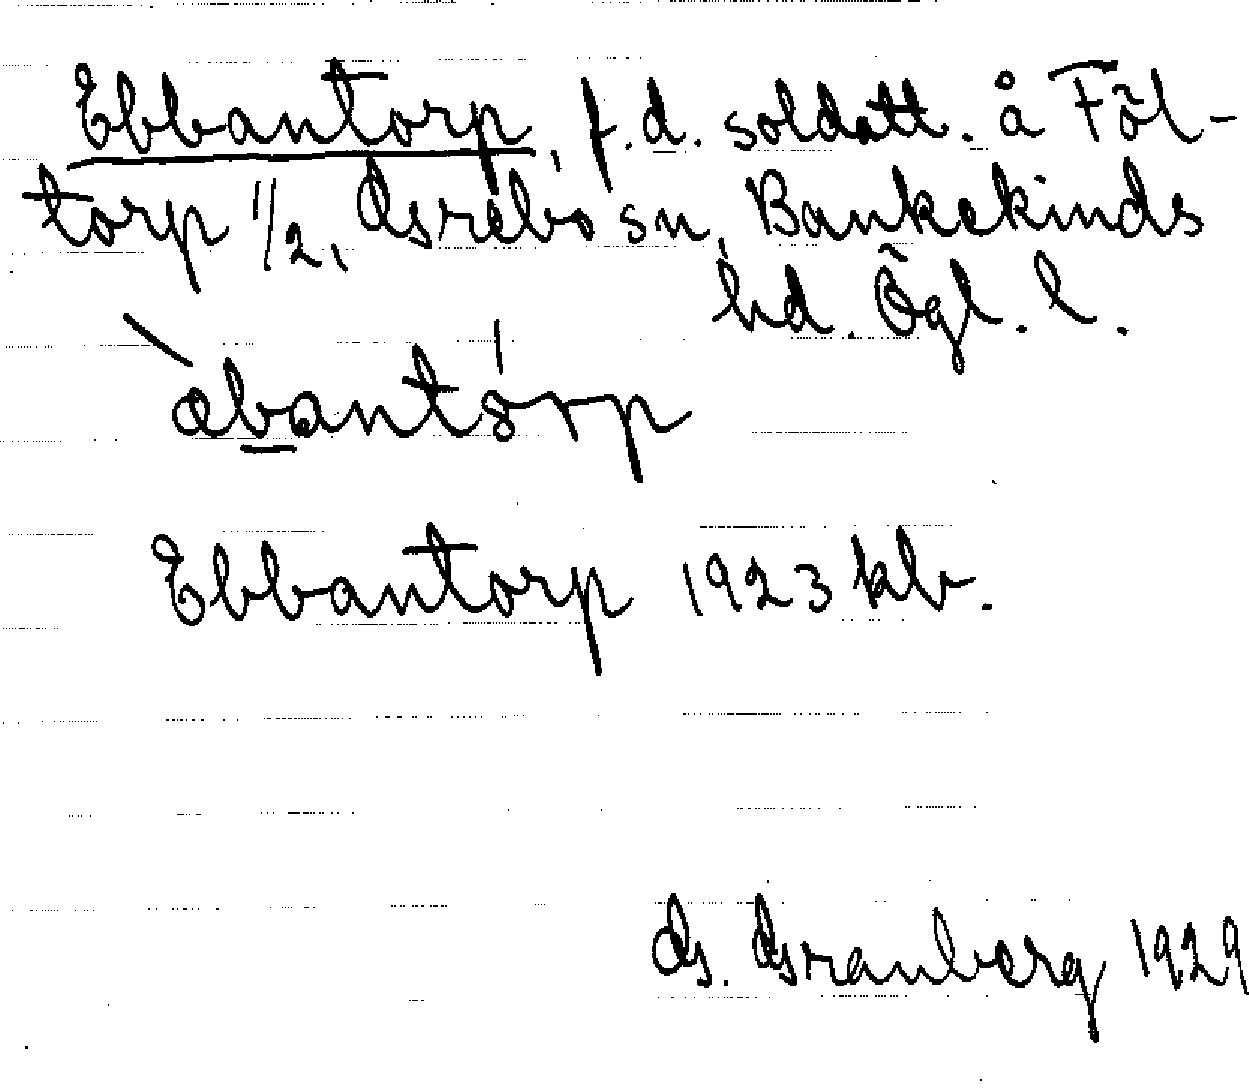 Ebbantorp, f.d. soldatt. å Föl-
torp 1/2, Grebo sn, Bankekinds
hd. Ögl. l.
æbantòrp
Ebbantorp 1923 kb.
G. Granberg 1929